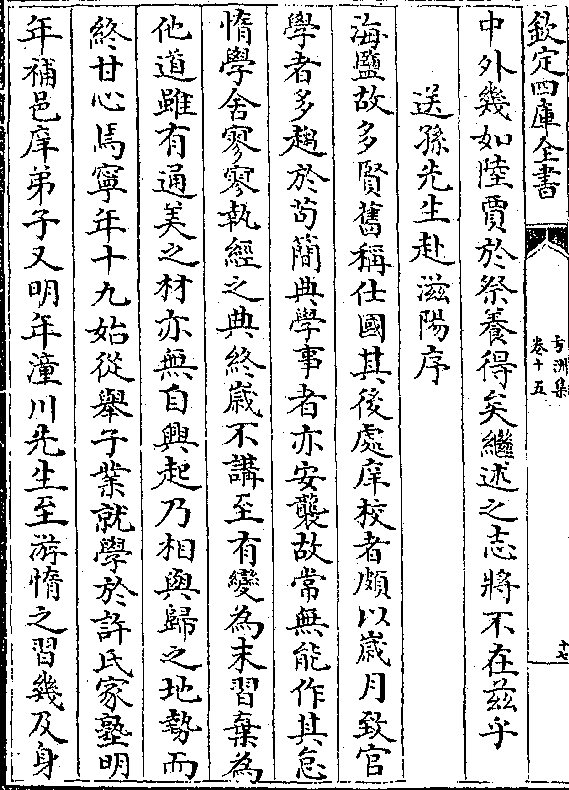 欽定四庫全書
方洲集
卷十五
十七
中外幾如陸賈於祭養得矣繼述之志將不在茲乎
送孫先生赴滋陽序
海鹽故多賢舊稱仕國其後處庠校者頗以嵗月致官
學者多趨於苟簡典學事者亦安襲故常無能作其怠
惰學舍寥寥執經之典終嵗不講至有變為末習棄為
他道雖有通美之材亦無自興起乃相與歸之地勢而
終甘心焉寧年十九始從舉子業就學於許氏家塾明
年補邑庠弟子又明年潼川先生至游惰之習幾及身